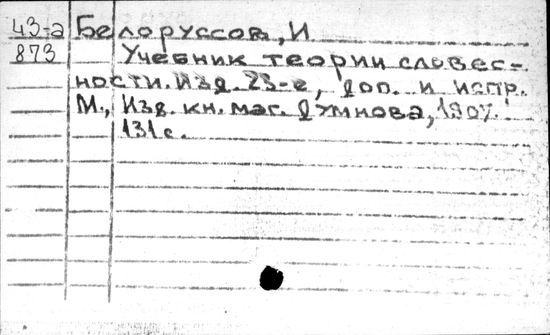 43-а Белоруссов, И
873 Учебник теории словес-
ности. Изд. 23-е, доп. и испр.
М., Изд. кн. маг. Думнова, 1907.
131 с.